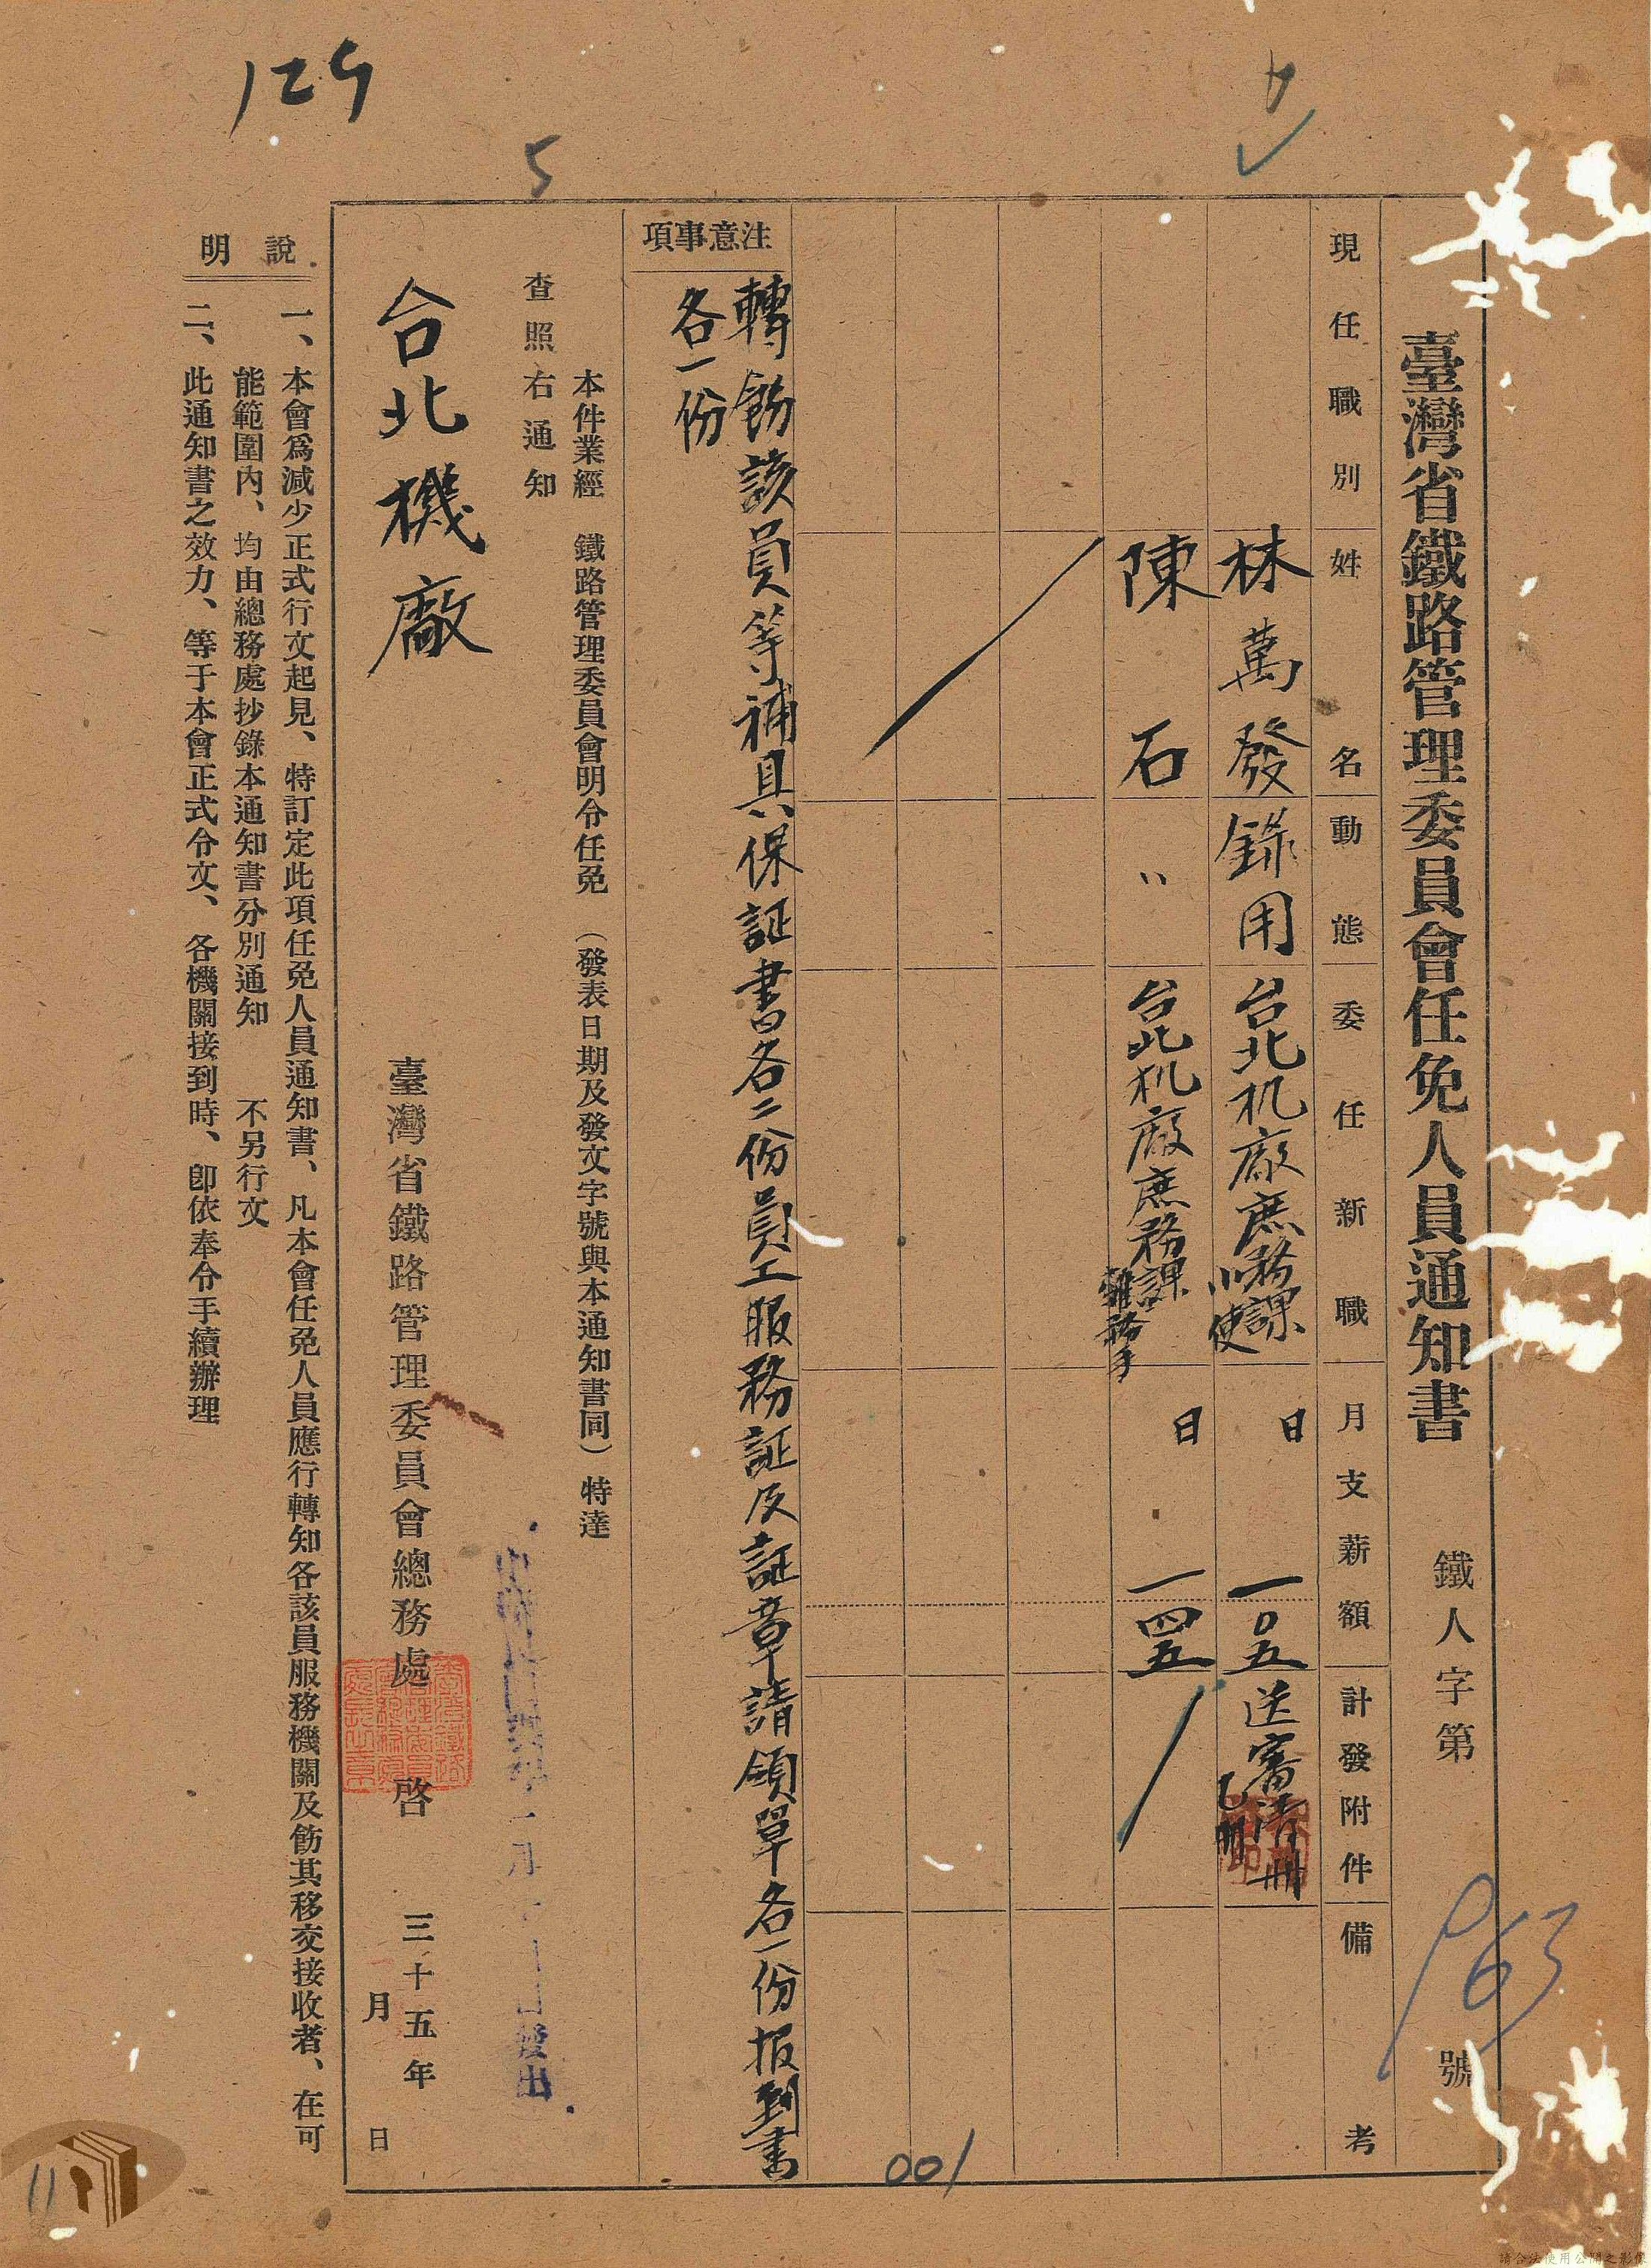 129
5
臺灣省鐵路管理委員會任免人員通知書
鐵人字第 號
現任職別 姓名 動態 委任新職 月支薪額 計發附件 備考
林萬發 錄用 台北机廠庶務課小使 日 一〇五 送審清冊乙冊
陳石 〃 台北机廠庶務課雜務手 日 一四五
注意事項
轉飭該員等補具保証書各二份員工服務証及証章請領單各一份报到書
各一份
本件業經 鐵路管理委員會明令任免 (發表日期及發文字號與本通知書同) 特達
查照右通知
台北機廠
臺灣省鐵路管理委員會總務處 啓 三十五年 月 日
發出
說明
一、本會爲減少正式行文起見、特訂定此項任免人員通知書、凡本會任免人員應行轉知各該員服務機關及飭其移交接收者、在可
能範圍內、均由總務處抄錄本通知書分別通知 不另行文
二、此通知書之效力、等于本會正式令文、各機關接到時、卽依奉令手續辦理
001
11
請合法使用公開之影像